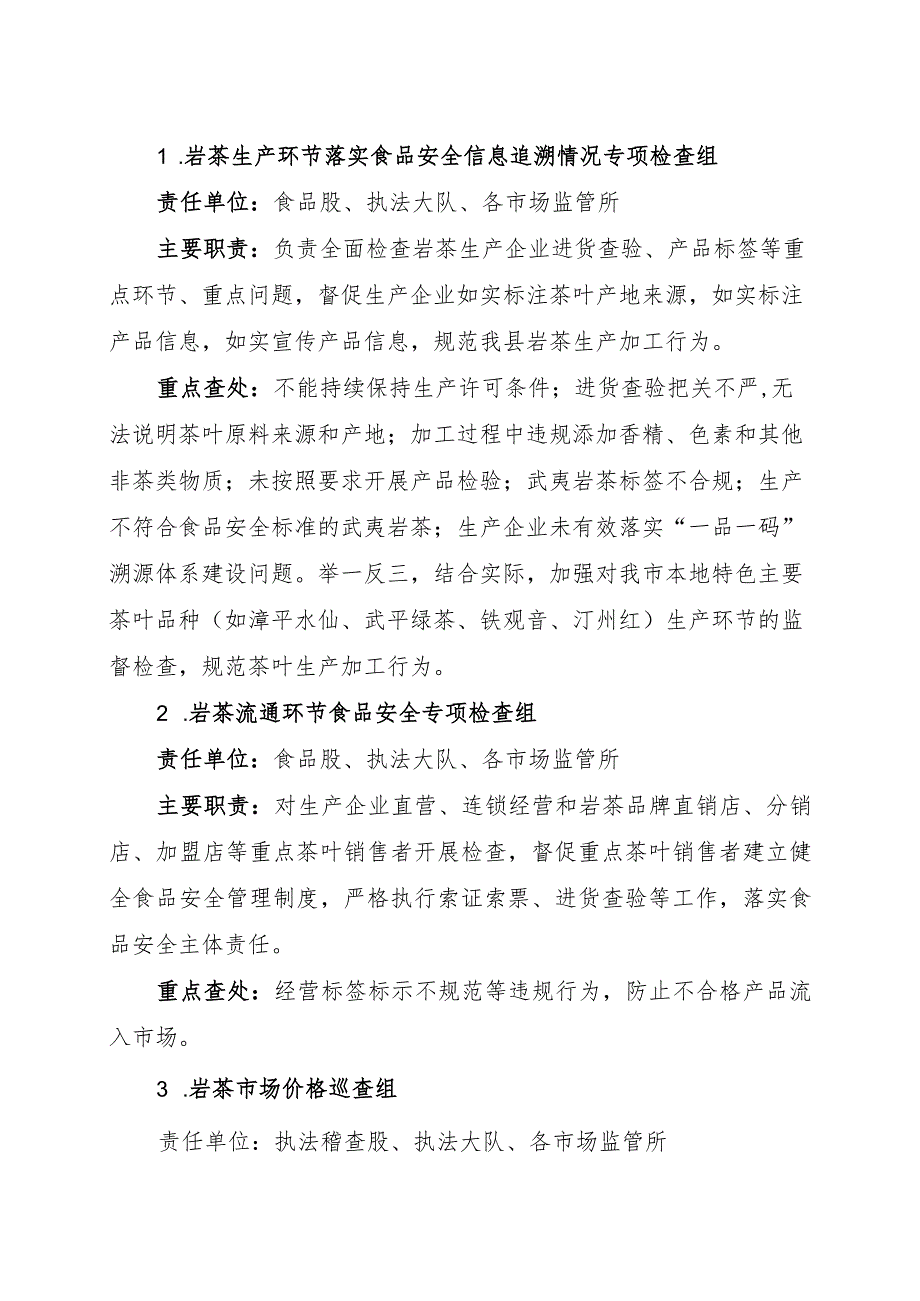 1 .岩茶生产环节落实食品安全信息追溯情况专项检查组
责任单位：食品股、执法大队、各市场监管所
主要职责：负责全面检查岩茶生产企业进货查验、产品标签等重
点环节、重点问题，督促生产企业如实标注茶叶产地来源，如实标注
产品信息，如实宣传产品信息，规范我县岩茶生产加工行为。
重点查处：不能持续保持生产许可条件；进货查验把关不严,无
法说明茶叶原料来源和产地；加工过程中违规添加香精、色素和其他
非茶类物质；未按照要求开展产品检验；武夷岩茶标签不合规；生产
不符合食品安全标准的武夷岩茶；生产企业未有效落实“一品一码”
溯源体系建设问题。举一反三，结合实际，加强对我市本地特色主要
茶叶品种（如漳平水仙、武平绿茶、铁观音、汀州红）生产环节的监
督检查，规范茶叶生产加工行为。
2 .岩茶流通环节食品安全专项检查组
责任单位：食品股、执法大队、各市场监管所
主要职责：对生产企业直营、连锁经营和岩茶品牌直销店、分销
店、加盟店等重点茶叶销售者开展检查，督促重点茶叶销售者建立健
全食品安全管理制度，严格执行索证索票、进货查验等工作，落实食
品安全主体责任。
重点查处：经营标签标示不规范等违规行为，防止不合格产品流
入市场。
3 .岩茶市场价格巡查组
责任单位：执法稽查股、执法大队、各市场监管所